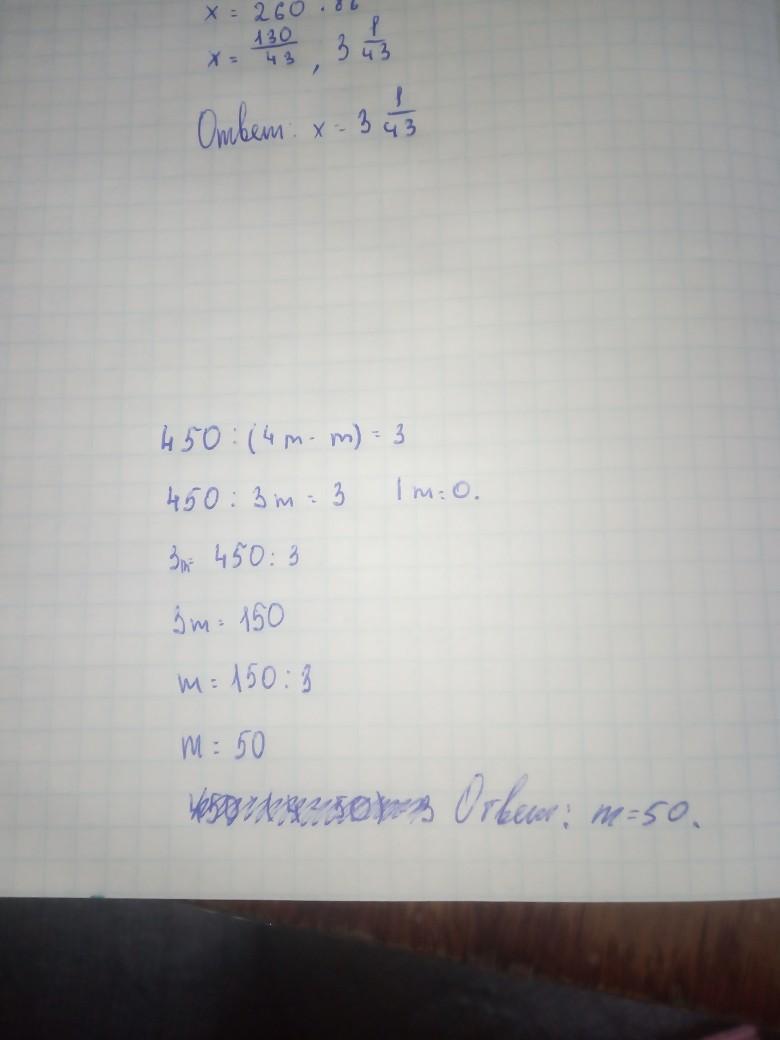 x = 260 : 86
x = 130/43, 3 1/43
Ответ: x = 3 1/43
450 : (4m - m) = 3
450 : 3m = 3 | m = 0.
3m = 450 : 3
3m = 150
m = 150 : 3
m = 50
Ответ: m = 50.